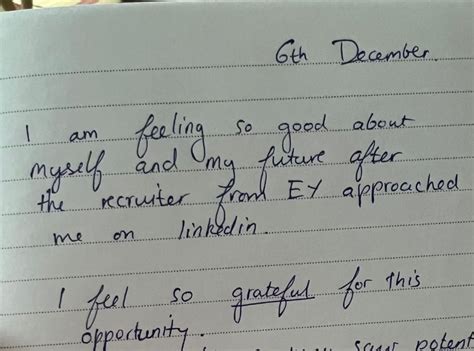 6th December.
I am feeling so good about
myself and my future after
the recruiter from EY approached
me on linkedin.
I feel so grateful for this
opportunity.